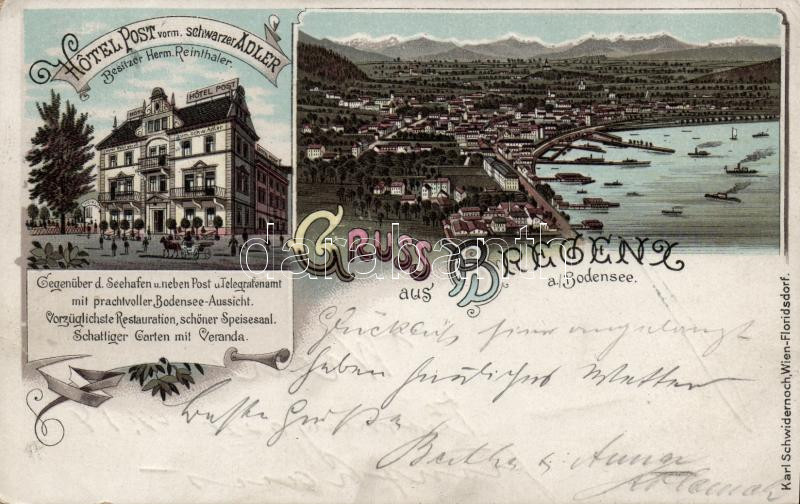 HÔTEL POST vorm. schwarzer ADLER
Besitzer Herm. Reinthaler.
HÔTEL POST
Gegenüber d. Seehafen u. neben Post u. Telegrafenamt
mit prachtvoller Bodensee-Aussicht.
Vorzüglichste Restauration, schöner Speisesaal.
Schattiger Garten mit Veranda.
GRUSS aus BREGENZ
a/Bodensee.
darabanth.com
Glücklich hier angelangt
haben herrliches Wetter
Beste Grüße
Bertha u. Anna
Karl Schwidernoch, Wien-Floridsdorf.